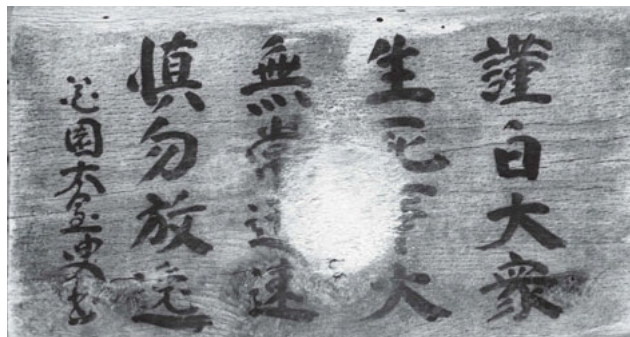 謹白大衆
生死事大
無常迅速
慎勿放逸
花園叟書